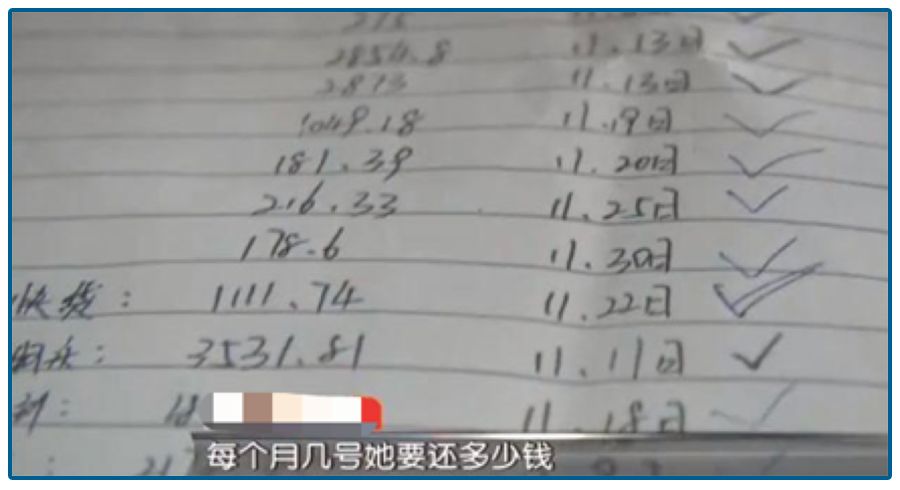 2854.8 11.13日
2873 11.13日
1049.18 11.19日
181.39 11.20日
216.33 11.25日
178.6 11.30日
快贷: 1111.74 11.22日
3531.81 11.11日
18 11.18日
每个月几号她要还多少钱